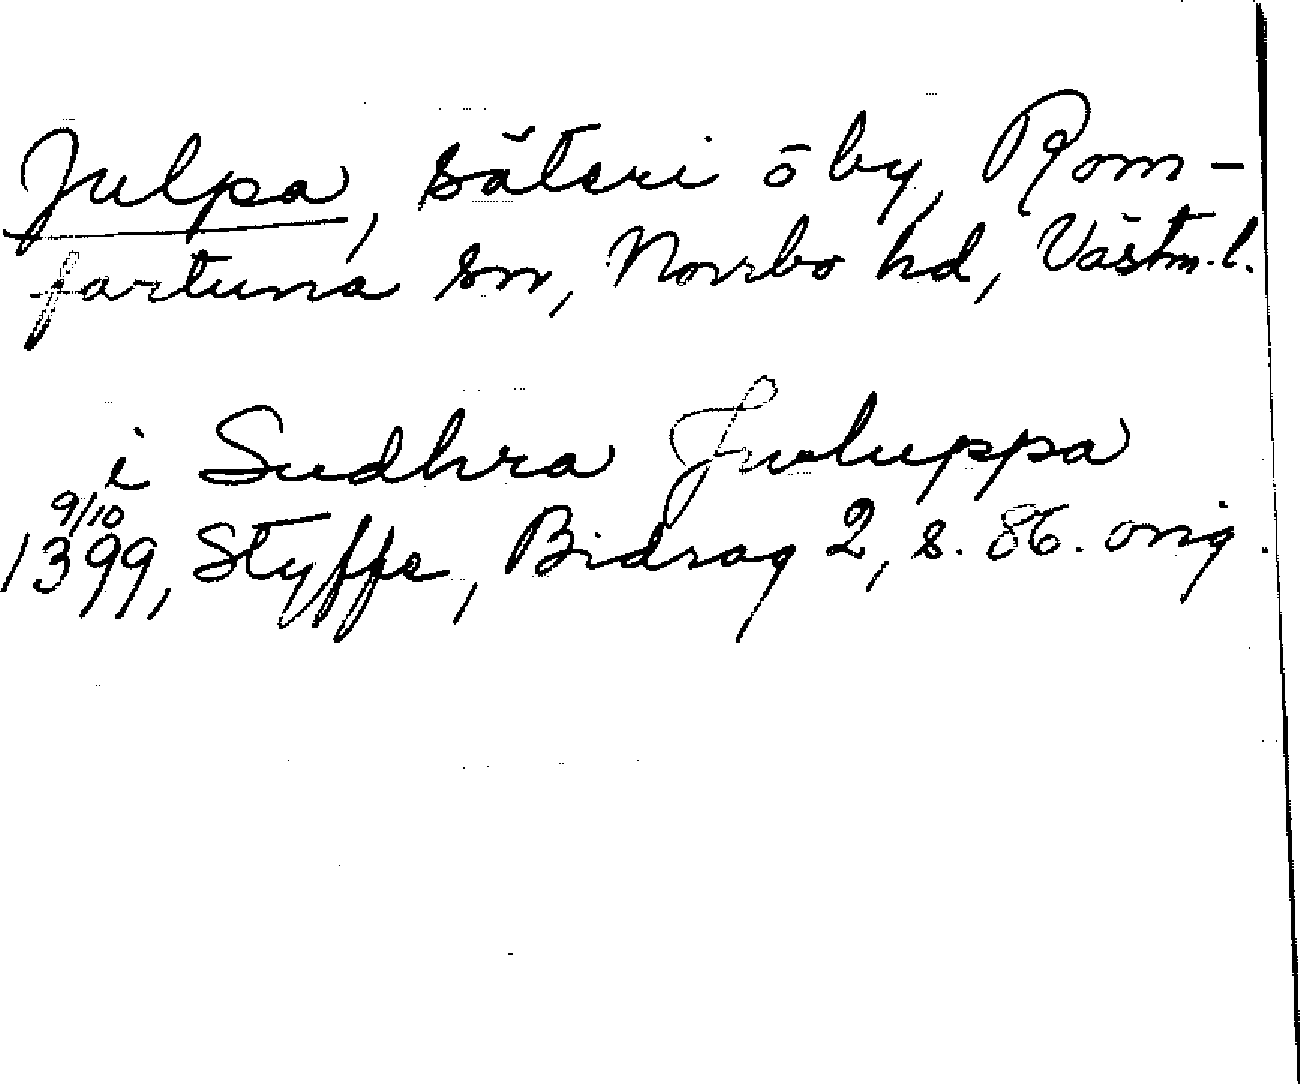 Julpa, säteri o by, Rom-
fartuna sn, Norrbo hd, Västm.l.
i Sudhra Juluppa
9/10
1399, Styffe, Bidrag 2, s. 86. orig.